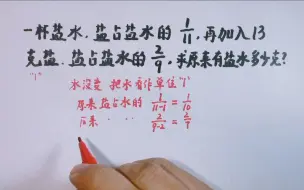 一杯盐水,盐占盐水的 1/11,再加入13
克盐,盐占盐水的 2/9,求原来有盐水多少克?
"1" 水没变 把水看作单位"1"
原来 盐占水的 1/(11-1) = 1/10
后来 〃 〃 2/(9-2) = 2/7